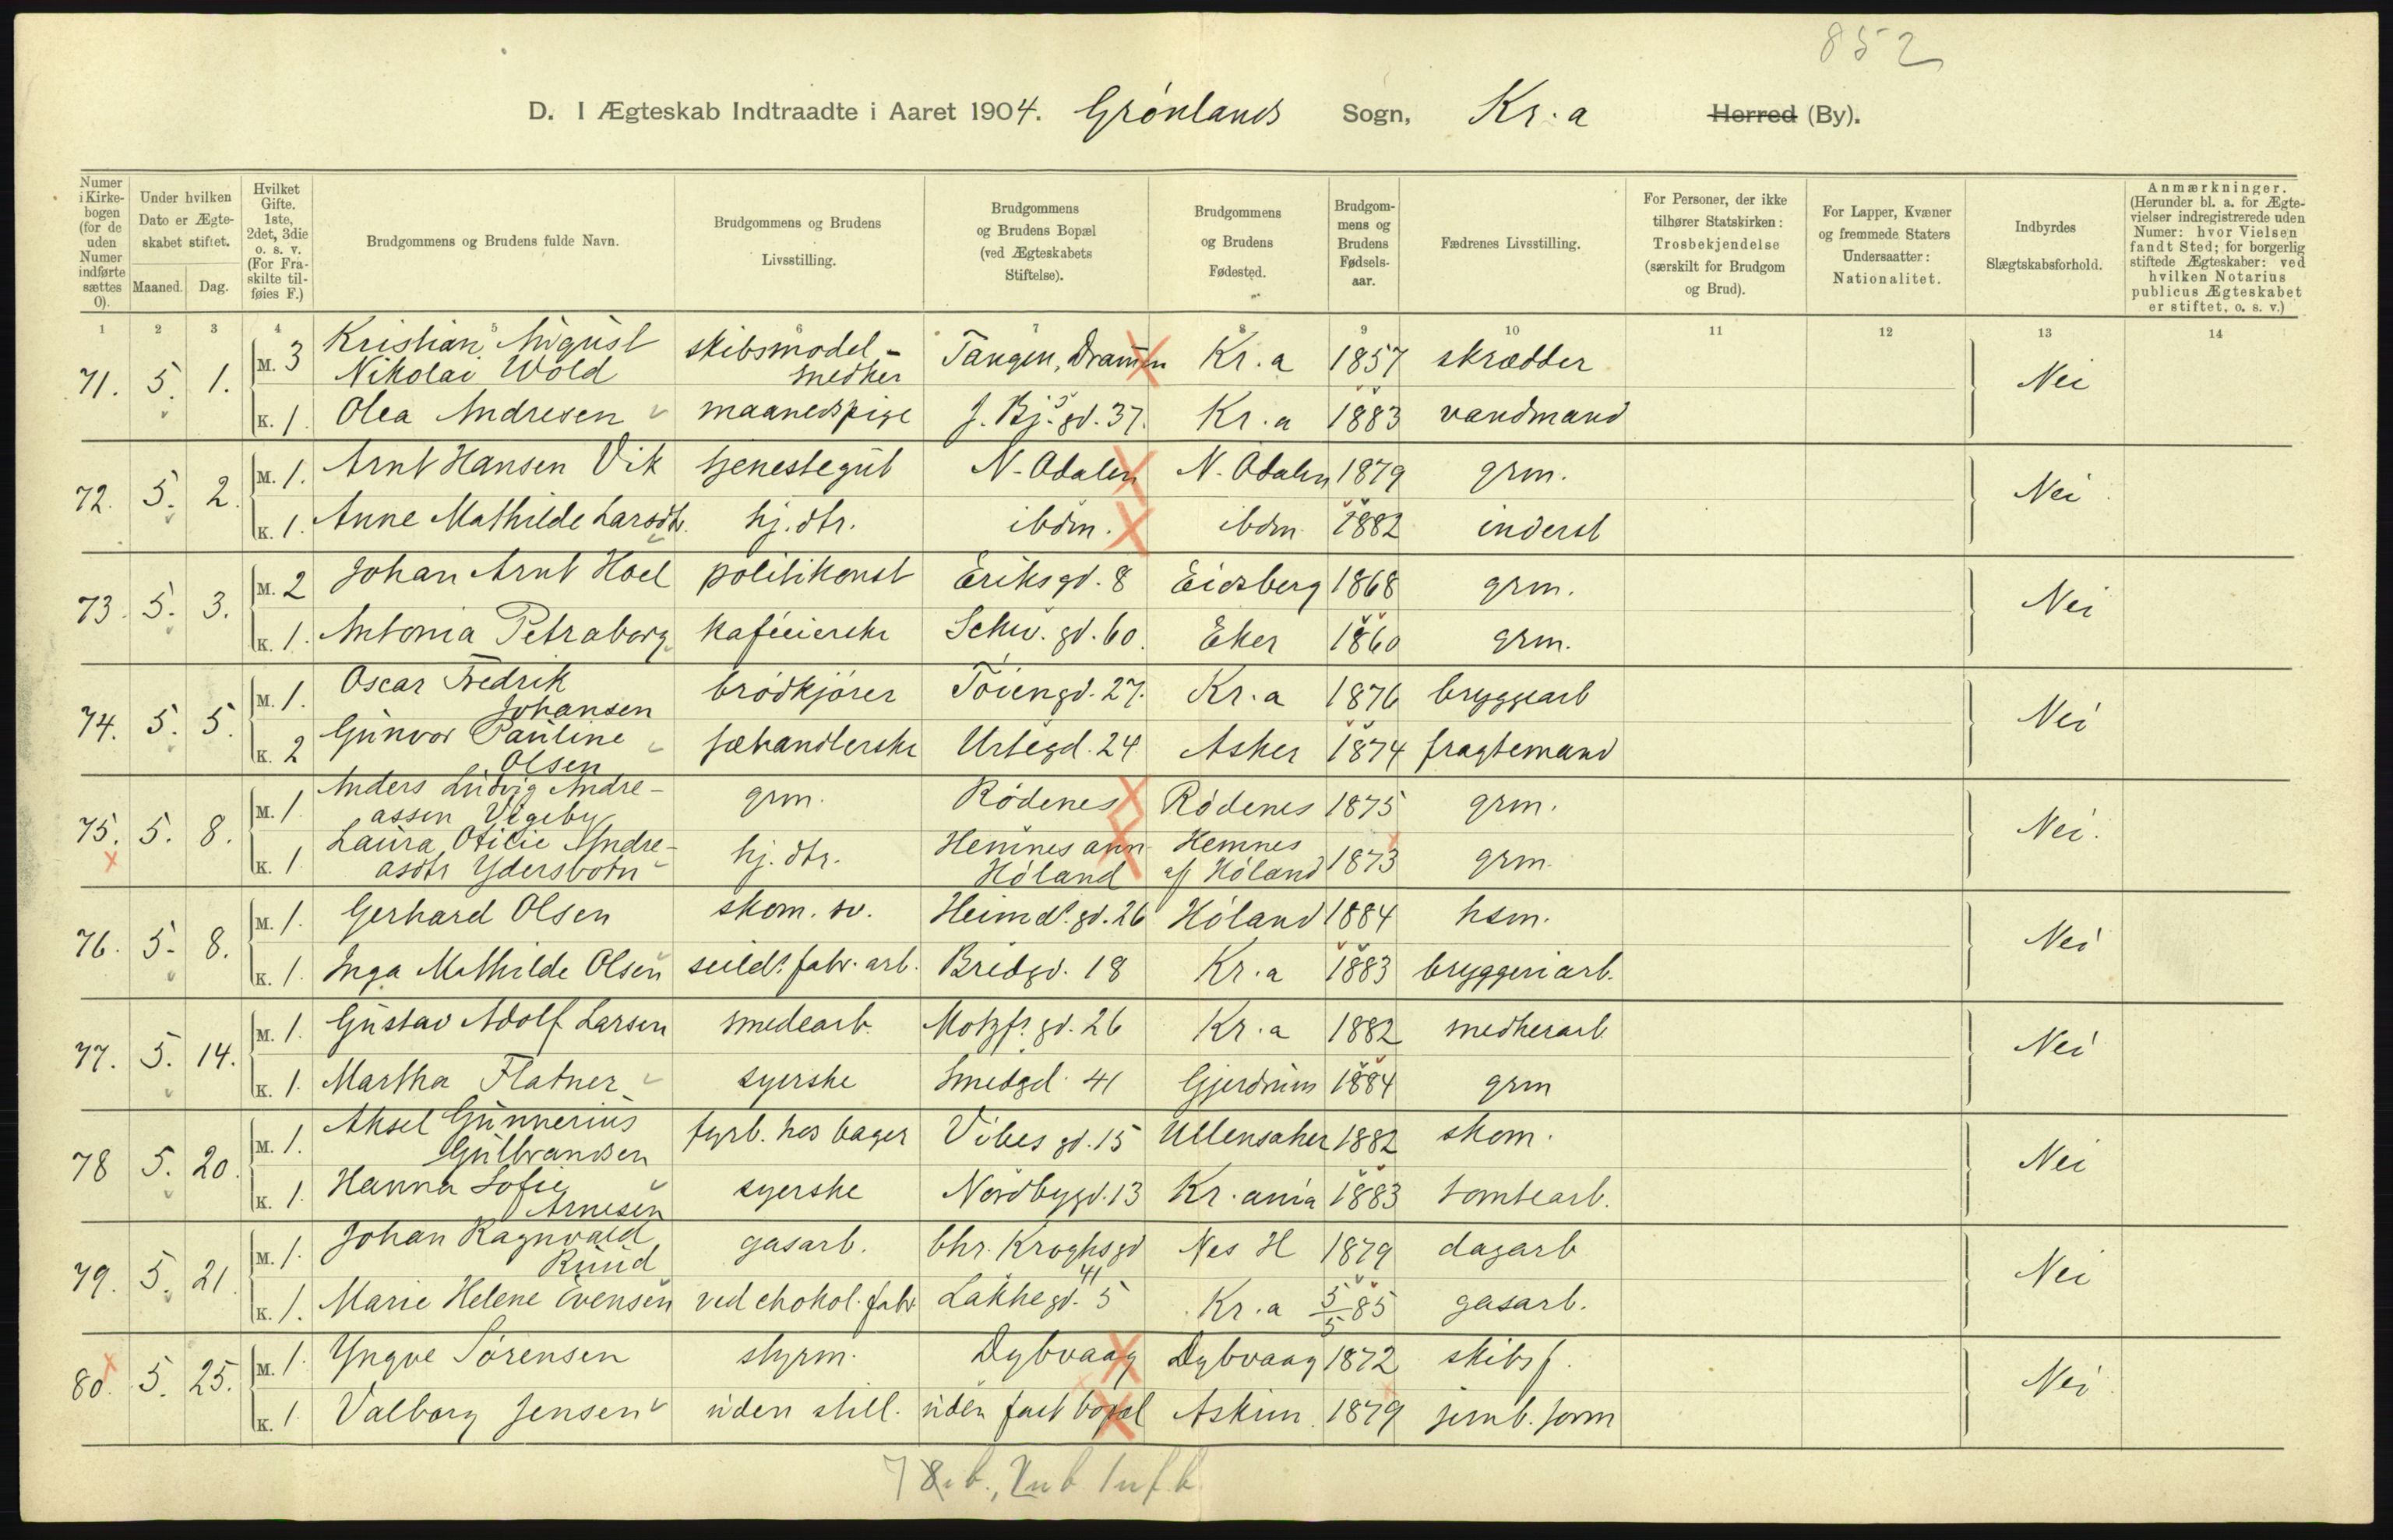 852
D. I Ægteskab Indtraadte i Aaret 1904. Grønlands Sogn, Kr.a Herred (By).
Numer i Kirkebogen (for de uden Numer indførte sættes 0). Under hvilken Dato er Ægteskabet stiftet. Maaned. Dag. Hvilket Gifte. 1ste, 2det, 3die o. s. v. (For Fraskilte tilføies F.) Brudgommens og Brudens fulde Navn. Brudgommens og Brudens Livsstilling. Brudgommens og Brudens Bopæl (ved Ægteskabets Stiftelse). Brudgommens og Brudens Fødested. Brudgommens og Brudens Fødselsaar. Fædrenes Livsstilling. For Personer, der ikke tilhører Statskirken: Trosbekjendelse (særskilt for Brudgom og Brud). For Lapper, Kvæner og fremmede Staters Undersaatter: Nationalitet. Indbyrdes Slægtskabsforhold. Anmærkninger. (Herunder bl. a. for Ægtevielser indregistrerede uden Numer: hvor Vielsen fandt Sted; for borgerlig stiftede Ægteskaber: ved hvilken Notarius publicus Ægteskabet er stiftet, o. s. v.)
1 2 3 4 5 6 7 8 9 10 11 12 13 14
71. 5. 1. M. 3 Kristian August Nikolai Wold skibsmodel-snedker Tangen, Drammen Kr.a 1857 skrædder Nei
K. 1. Olea Andresen maanedspige J. Bj.s gd. 37. Kr.a 1883 vandmand
72. 5. 2. M. 1. Arnt Hansen Vik tjenestegut N. Odalen N. Odalen 1879 grm. Nei
K. 1. Anne Mathilde Larsdtr. hj. dtr. ibdm. ibdm 1882 inderst
73. 5. 3. M. 2 Johan Arnt Hoel politikonst Eriksgd. 8 Eidsberg 1868 grm. Nei
K. 1. Antonia Petraborg kaféeierske Schw. gd. 60. Eker 1860 grm.
74. 5. 5. M. 1. Oscar Fredrik Johansen brödkjörer Töiengd. 27. Kr.a 1876 bryggearb Nei
K. 2 Gunvor Pauline Olsen fæhandlerske Urtegd. 24 Asker 1874 fragtemand
75. 5. 8. M. 1 Anders Ludvig Andreassen Vegeby grm. Rödenes Rödenes 1875 grm. Nei.
K. 1 Laura Otilie Andreasdtr Ydersbotn hj. dtr. Hemnes ann Höland Hemnes af Höland 1873 grm.
76. 5. 8. M. 1. Gerhard Olsen skom. sv. Heimdl. gd. 26 Höland 1884 hsm. Nei
K. 1. Inga Mathilde Olsen seilds fabr. arb. Bredgd. 18 Kr.a 1883 bryggeriarb.
77. 5. 14. M. 1. Gustav Adolf Larsen smedearb. Motzfs gd. 26 Kr.a 1882 snedkerarb. Nei
K. 1. Martha Flatner syerske Smedgd. 41 Gjerdrum 1884 grm
78 5. 20. M. 1. Aksel Gunnerius Gulbrandsen fyrb. hos bager Vibes gd. 15 Ullensaker 1882 skom. Nei
K. 1. Hanna Sofie Arnesen syerske Nordbygd. 13 Kr.ania 1883 tomtearb.
79. 5. 21. M. 1. Johan Ragnvald Ruud gasarb. Chr. Kroghsgd 41 Nes H 1879 dagarb Nei
K. 1. Marie Helene Evensen ved chokol. fabr Lakkegd. 5 Kr.a 5/5 85 gasarb.
80. 5. 25. M. 1. Yngve Sörensen styrm. Dybvaag Dybvaag 1872 skibsf. Nei
K. 1. Valborg Jensen uden still. uden fast bopæl Askim 1879 jernb. form